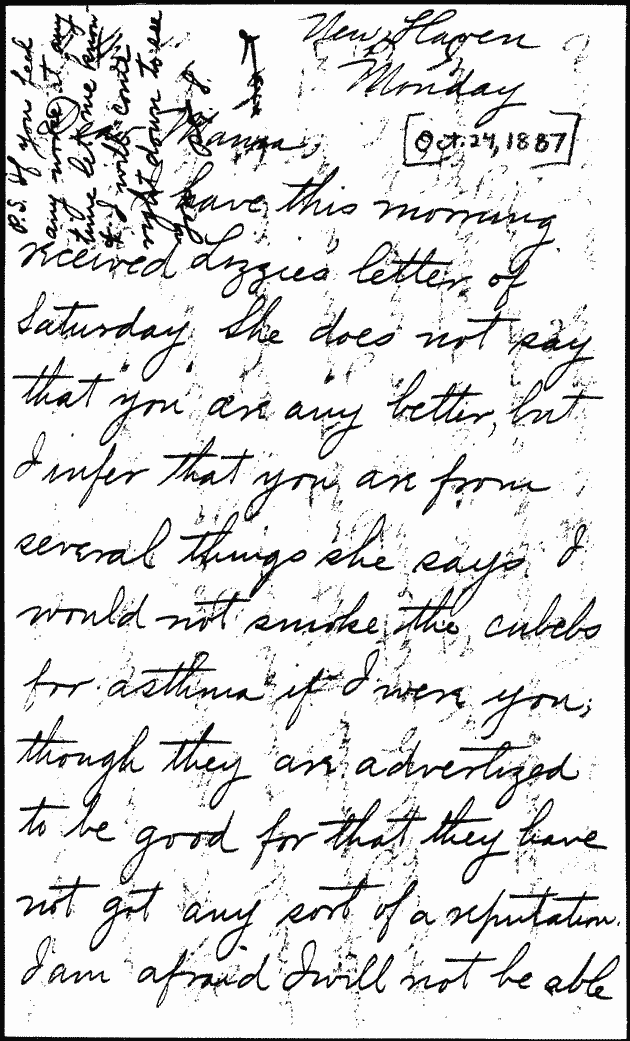 New Haven
Monday
[Oct. 24, 1887]
Mama,
I have this morning
received Lizzie's letter of
Saturday She does not say
that you are any better, but
I infer that you are from
several things she says. I
would not smoke the cubebs
for asthma if I were you;
though they are advertized
to be good for that they have
not got any sort of a reputation.
I am afraid I will not be able
P.S. If you feel
any worse at any
time let me know
& I will come
right down to see
you